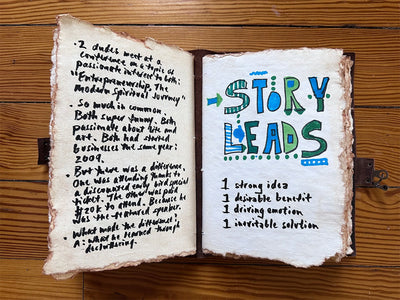 • 2 dudes meet at a
conference on a topic of
passionate interest to both:
"Entrepreneurship, The
Modern Spiritual Journey"
• So much in common.
Both super funny. Both
passionate about life and
art. Both had started
businesses the same year:
2009.
• But there was a difference.
One was attending thanks to
a discounted early bird special
ticket. The other was paid
$20K to attend. Because he
was the featured speaker.
• What made the difference?
A: What he learned through
STORY
LEADS
1 strong idea
1 desirable benefit
1 driving emotion
1 inevitable solution